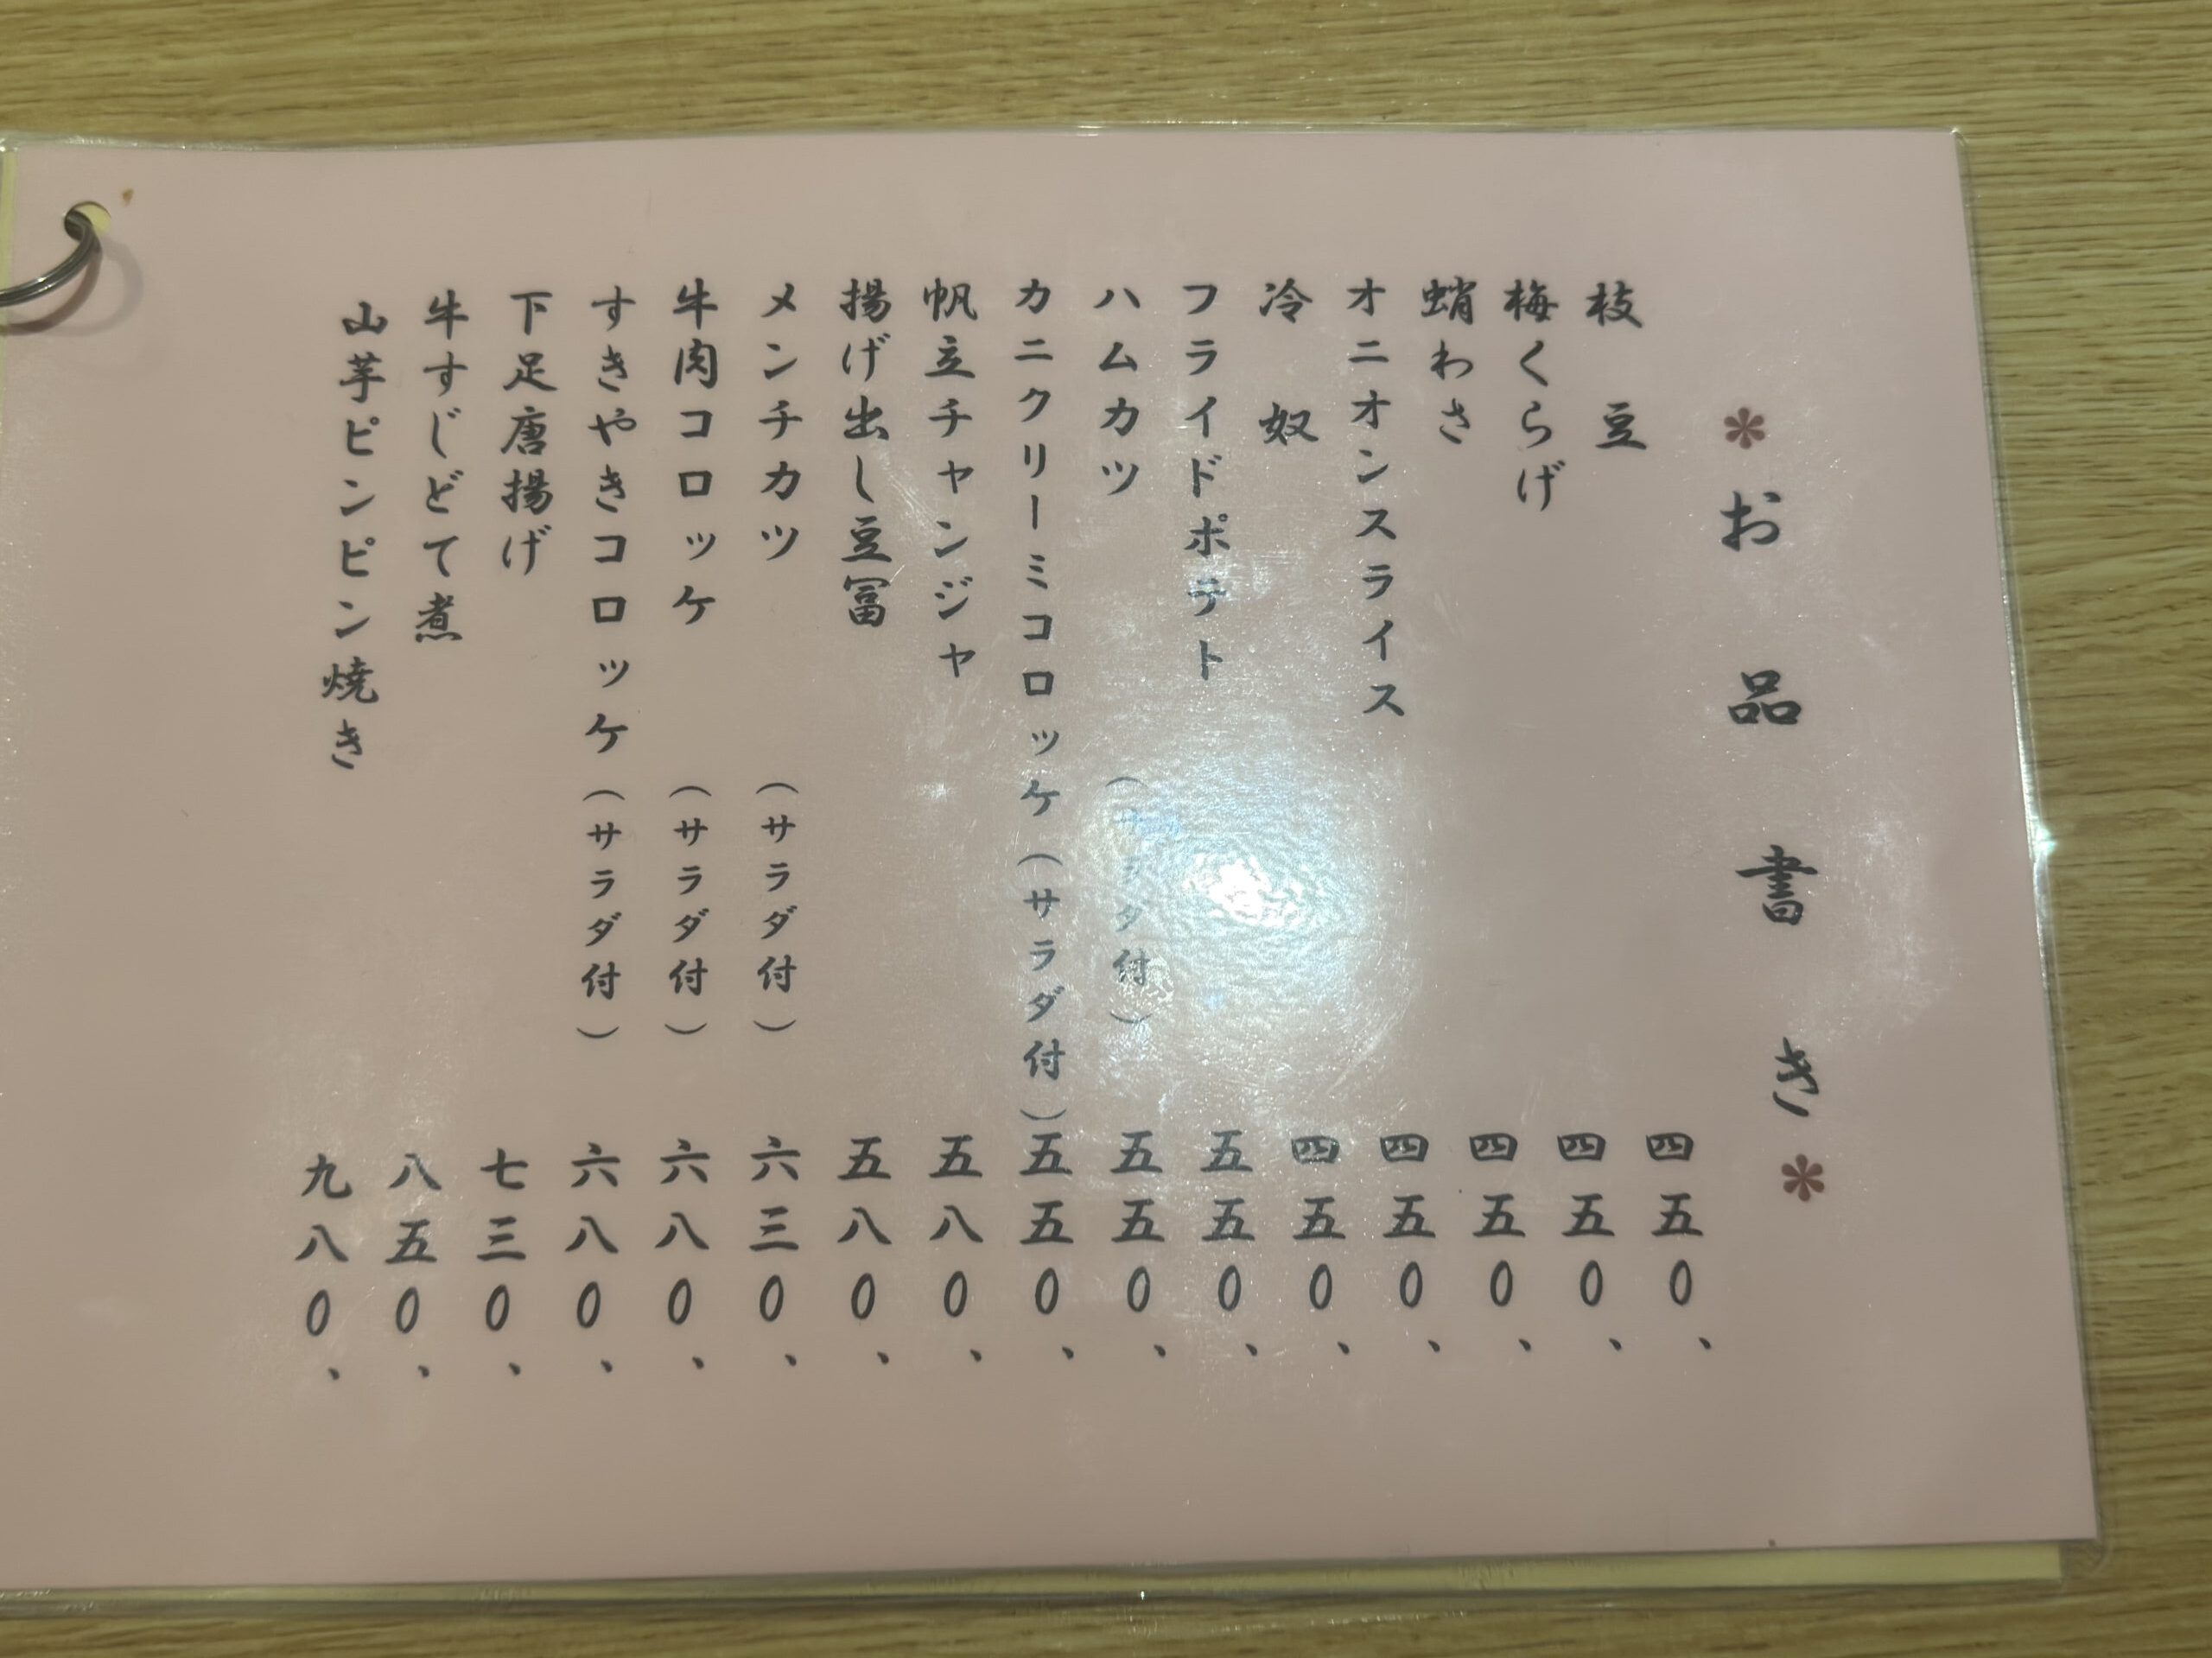 *お品書き*
枝豆 四五0、
梅くらげ 四五0、
蛸わさ 四五0、
オニオンスライス 四五0、
冷奴 四五0、
フライドポテト 五五0、
ハムカツ (サラダ付) 五五0、
カニクリーミコロッケ (サラダ付) 五五0、
帆立チャンジャ 五八0、
揚げ出し豆冨 五八0、
メンチカツ (サラダ付) 六三0、
牛肉コロッケ (サラダ付) 六八0、
すきやきコロッケ (サラダ付) 六八0、
下足唐揚げ 七三0、
牛すじどて煮 八五0、
山芋ピンピン焼き 九八0、